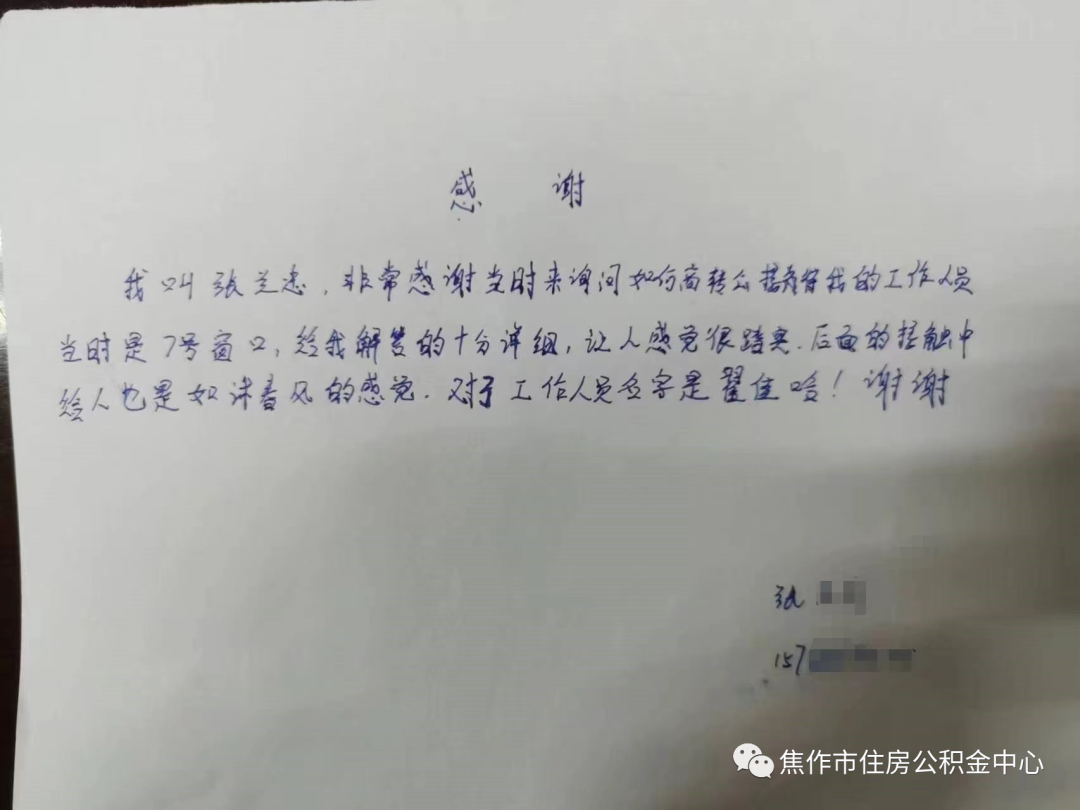 感 谢
我叫张兰忠，非常感谢当时来询问如何商转公接待我的工作人员
当时是7号窗口，给我解答的十分详细，让人感觉很踏实．后面的接触中
给人也是如沐春风的感觉．对于工作人员名字是翟佳哈！谢谢
张
157
焦作市住房公积金中心